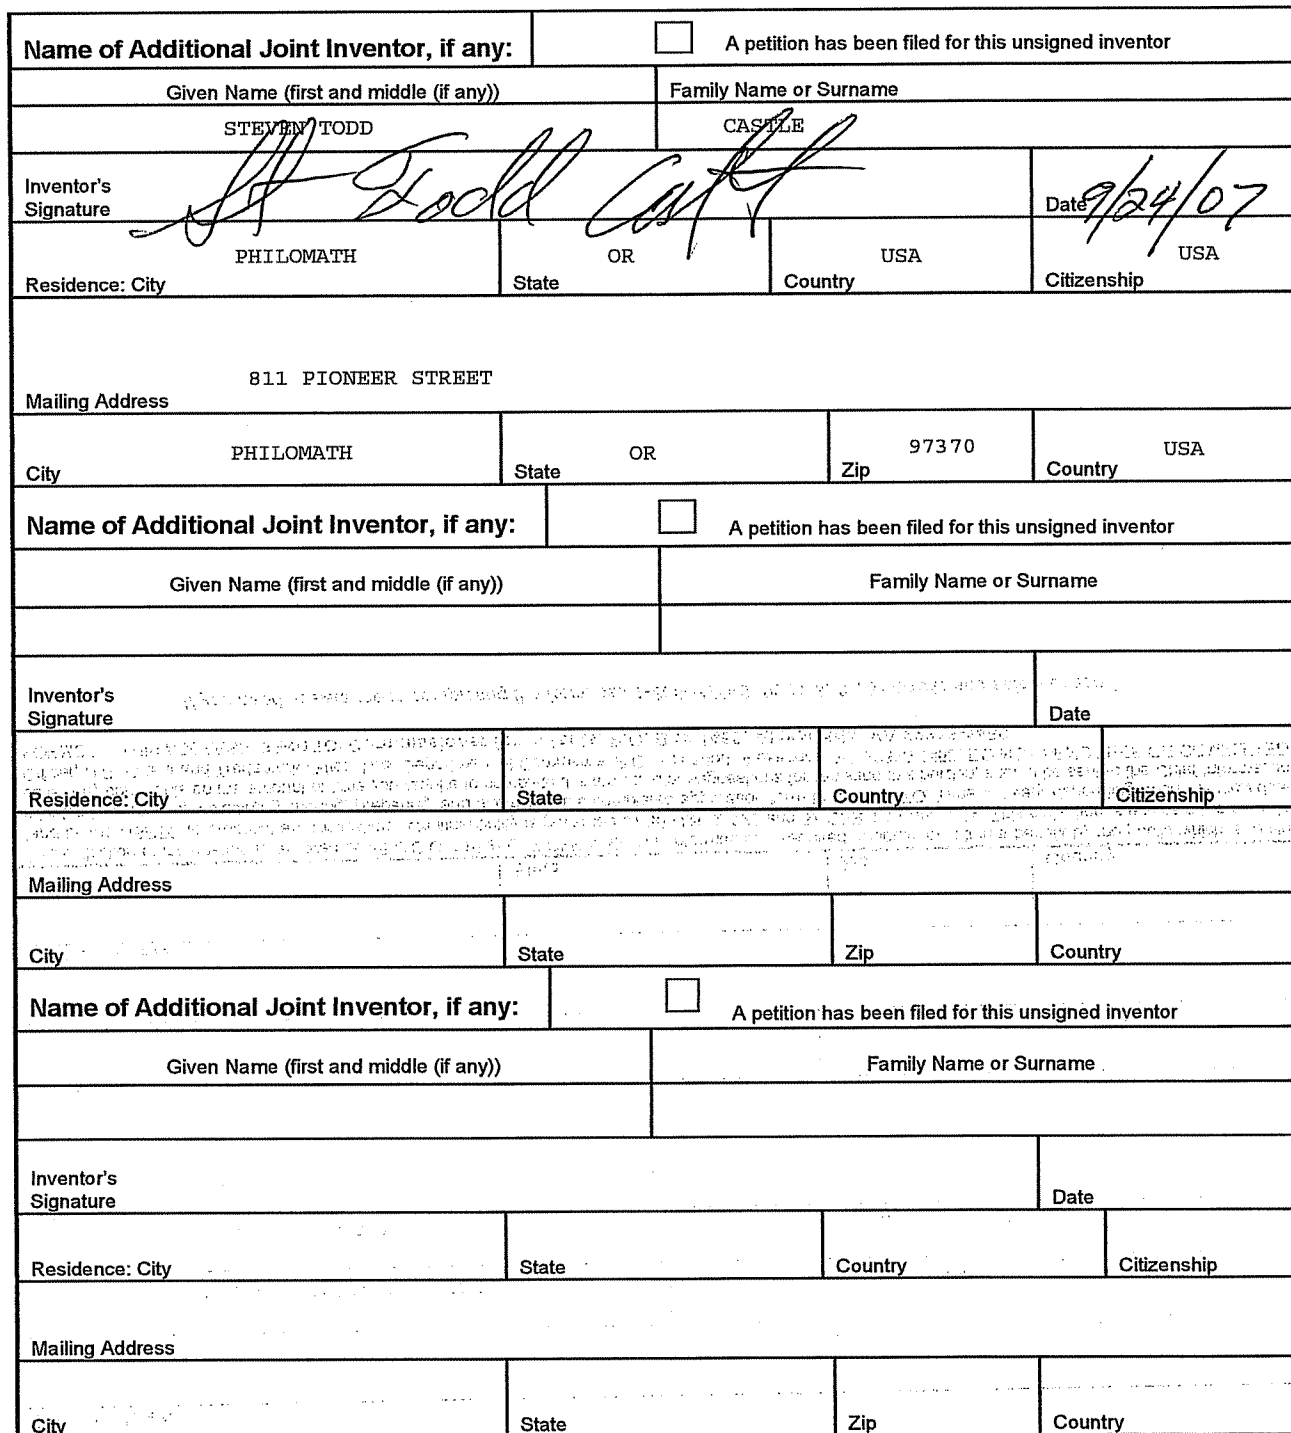 Name of Additional Joint Inventor, if any: A petition has been filed for this unsigned inventor
Given Name (first and middle (if any)) Family Name or Surname
STEVEN TODD CASTLE
Inventor's
Signature St Todd Castle Date 9/24/07
PHILOMATH OR USA USA
Residence: City State Country Citizenship
811 PIONEER STREET
Mailing Address
PHILOMATH OR 97370 USA
City State Zip Country
Name of Additional Joint Inventor, if any: A petition has been filed for this unsigned inventor
Given Name (first and middle (if any)) Family Name or Surname
Inventor's
Signature Date
Residence: City State Country Citizenship
Mailing Address
City State Zip Country
Name of Additional Joint Inventor, if any: A petition has been filed for this unsigned inventor
Given Name (first and middle (if any)) Family Name or Surname
Inventor's
Signature Date
Residence: City State Country Citizenship
Mailing Address
City State Zip Country